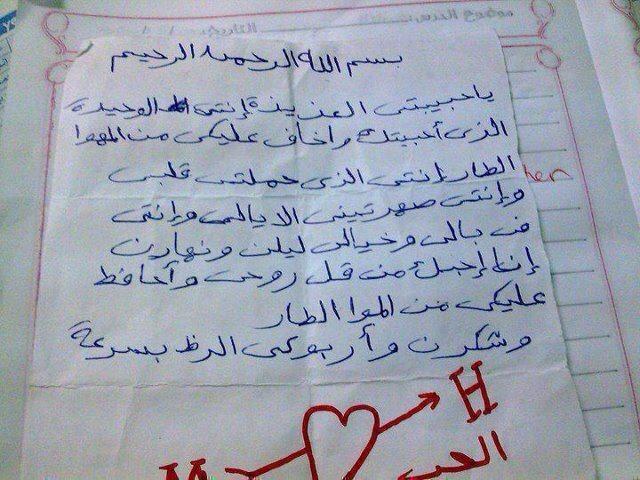 موضوع الدرس
التاريخ
بسم الله الرحمن الرحيم
ياحبيبتي العزيزة إنتى الوحيدة
الذى أحبيتك وأخاف عليكى من الهوا
الطار إنتى الذى حملتى قلبى
وإنتى صهرتينى الايالى وإنتى
فى بالى وخيالى ليلن ونهارن
إنا إحبك من قل روحى وأحافظ
عليكى من الهوا الطار
وشكرن وأربوكى الرظ بسرعة
H
الحب
M